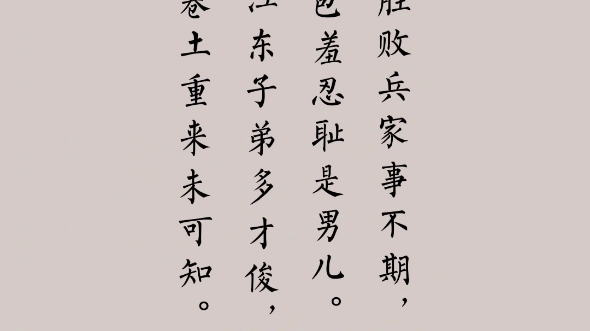 胜败兵家事不期，
包羞忍耻是男儿。
江东子弟多才俊，
卷土重来未可知。